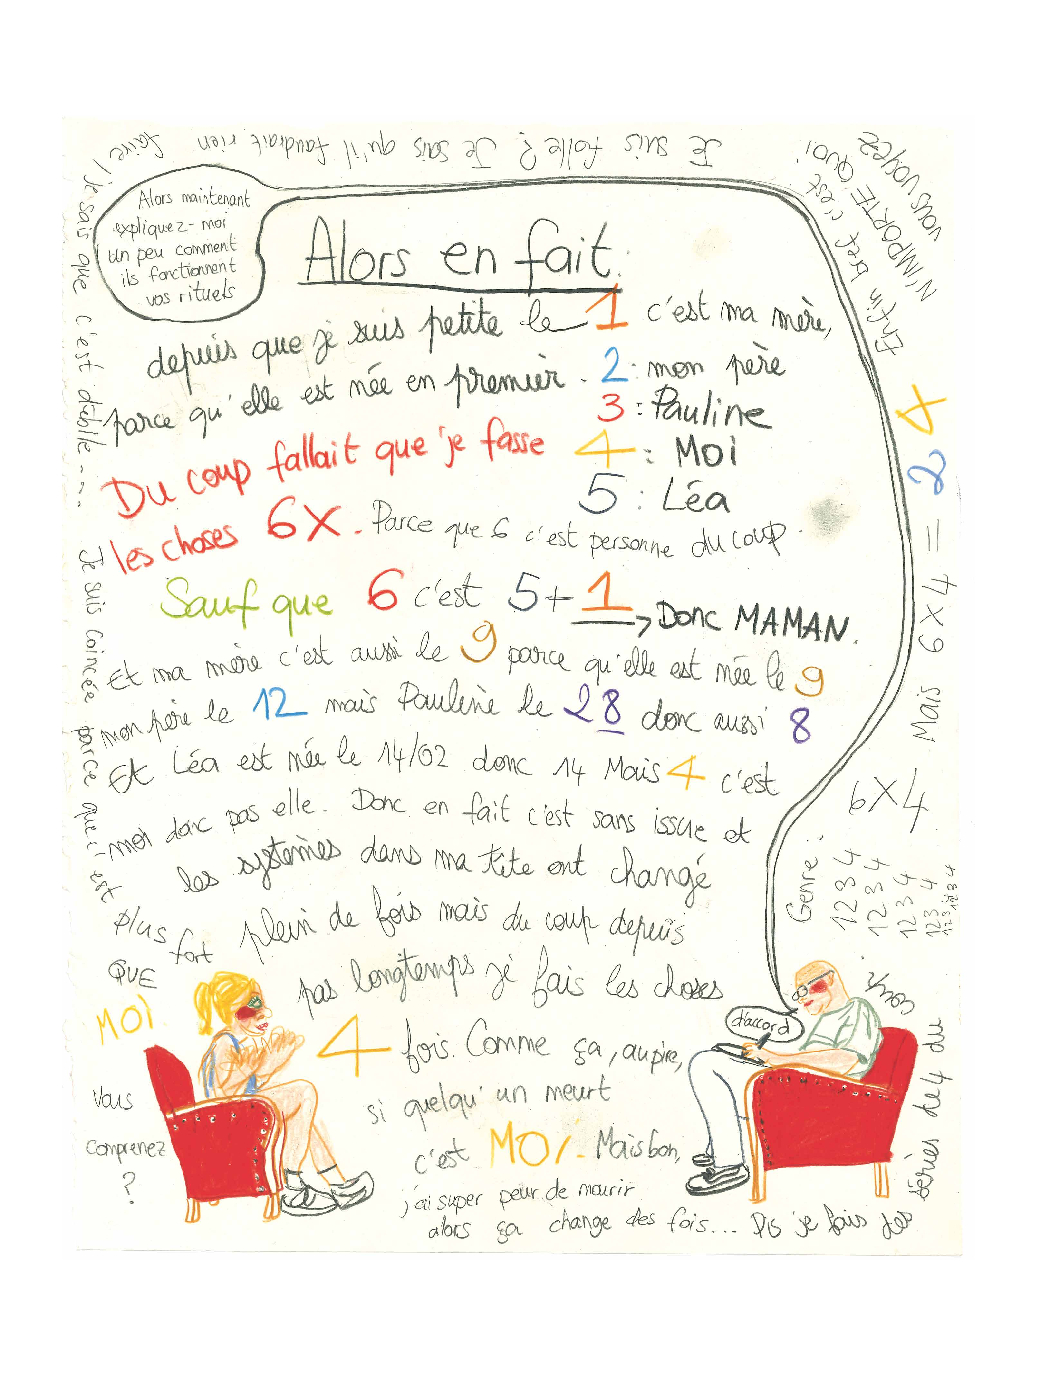 Alors maintenant
expliquez-moi
un peu comment
ils fonctionnent
vos rituels
Alors en fait.
depuis que je suis petite le 1 c'est ma mère,
parce qu'elle est née en premier. 2: mon père
3: Pauline
Du coup fallait que j'e fasse 4: Moi
5: Léa
les choses 6X. Parce que 6 c'est personne du coup.
Sauf que 6 c'est 5+1 → Donc MAMAN.
Et ma mère c'est aussi le 9 parce qu'elle est née le 9
mon père le 12 mais Pauline le 28 donc aussi 8
Et Léa est née le 14/02 donc 14 Mais 4 c'est
moi donc pas elle. Donc en fait c'est sans issue et
les systèmes dans ma tête ont changé
plein de fois mais du coup depuis
pas longtemps je fais les choses
4 fois. Comme ça, au pire,
si quelqu'un meurt
c'est MOI. Mais bon,
j'ai super peur de mourir
alors ça change des fois... Pis je fais des
séries de 4 du
coup.
Genre:
1 2 3 4
1 2 3 4
1 2 3 4
1 2 3 4
1 2 3 4
1 2 3 4
6X4
Mais 6X4 = 24
Enfin bref c'est
N'IMPORTE QUOI
vous voyez
Je suis folle? Je sais qu'il faudrait rien
faire! je sais que c'est débile...
Je suis coincée parce que c'est
plus
fort
QUE
MOI
Vous
comprenez
?
d'accord